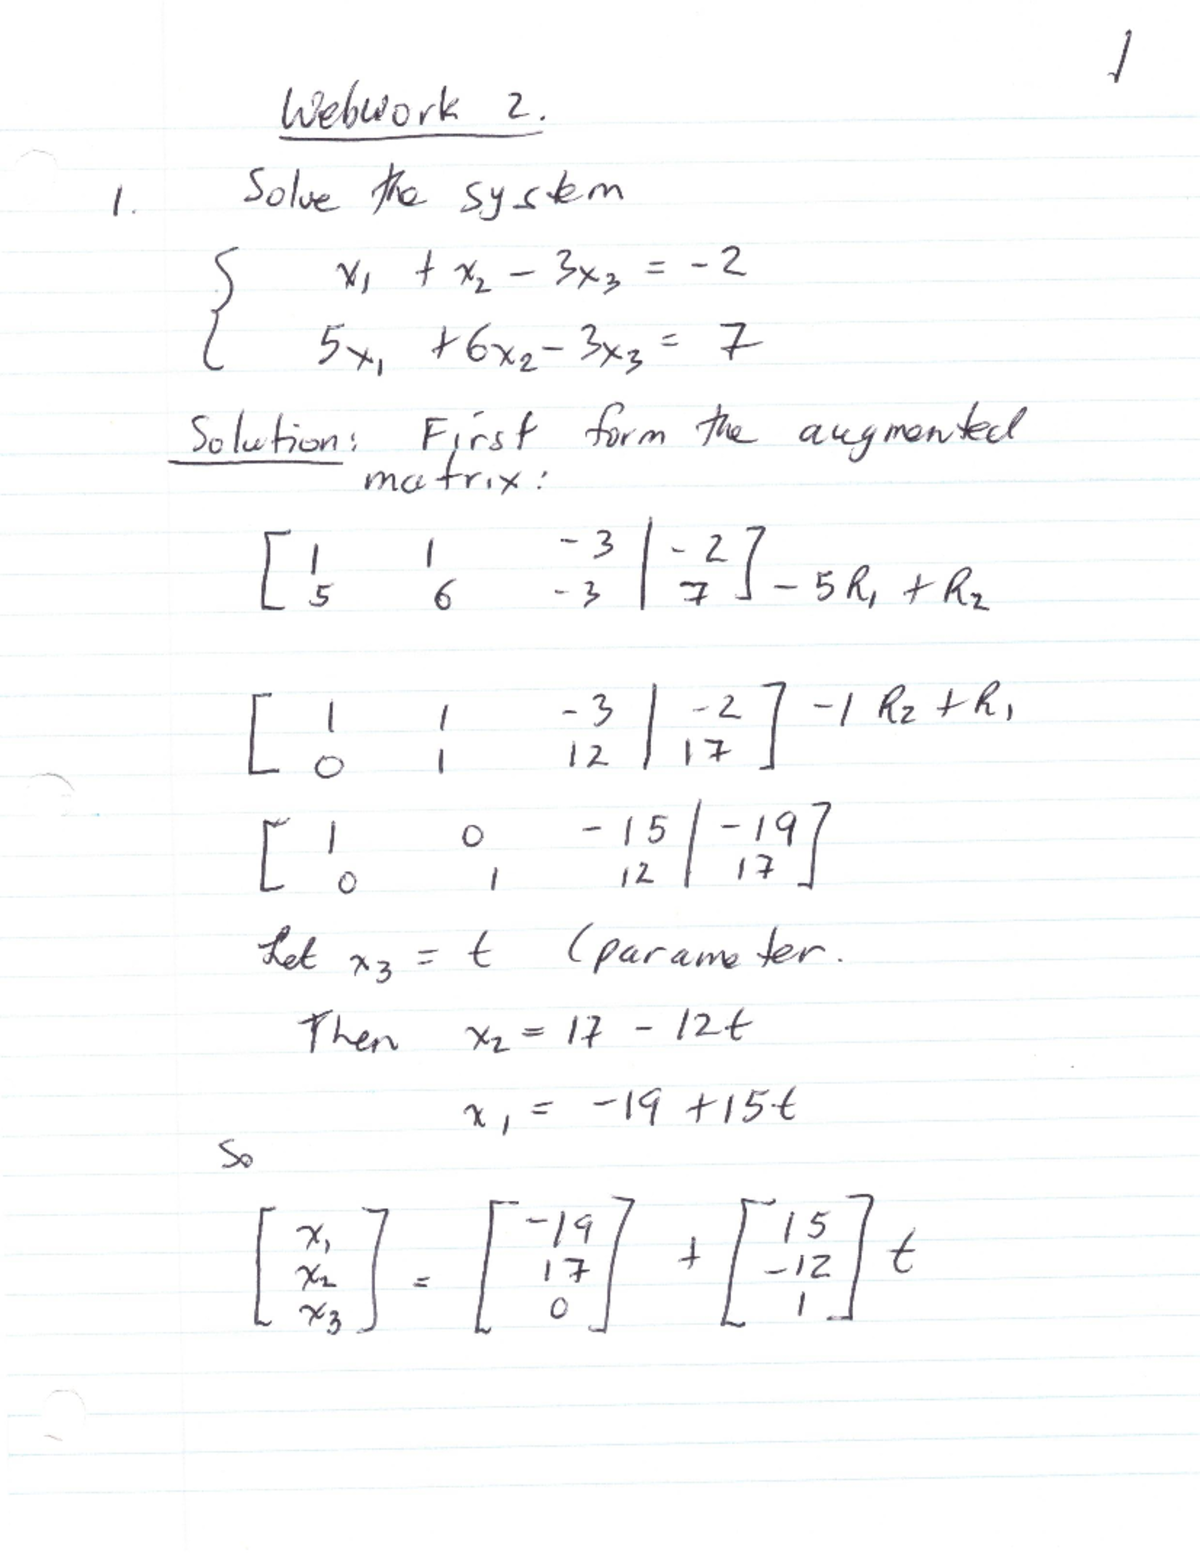 1
Webwork 2.
1. Solve the system
{ x₁ + x₂ - 3x₃ = -2
5x₁ + 6x₂ - 3x₃ = 7
Solution: First form the augmented
matrix:
[ 1 1 -3 | -2 ]
5 6 -3 | 7 ] - 5R₁ + R₂
[ 1 1 -3 | -2 ] -1 R₂ + R₁
0 1 12 | 17 ]
[ 1 0 -15 | -19 ]
0 1 12 | 17 ]
Let x₃ = t (parameter.
Then x₂ = 17 - 12t
x₁ = -19 + 15t
So
[ x₁ ] [ -19 ] [ 15 ]
x₂ = 17 + -12 t
x₃ 0 1